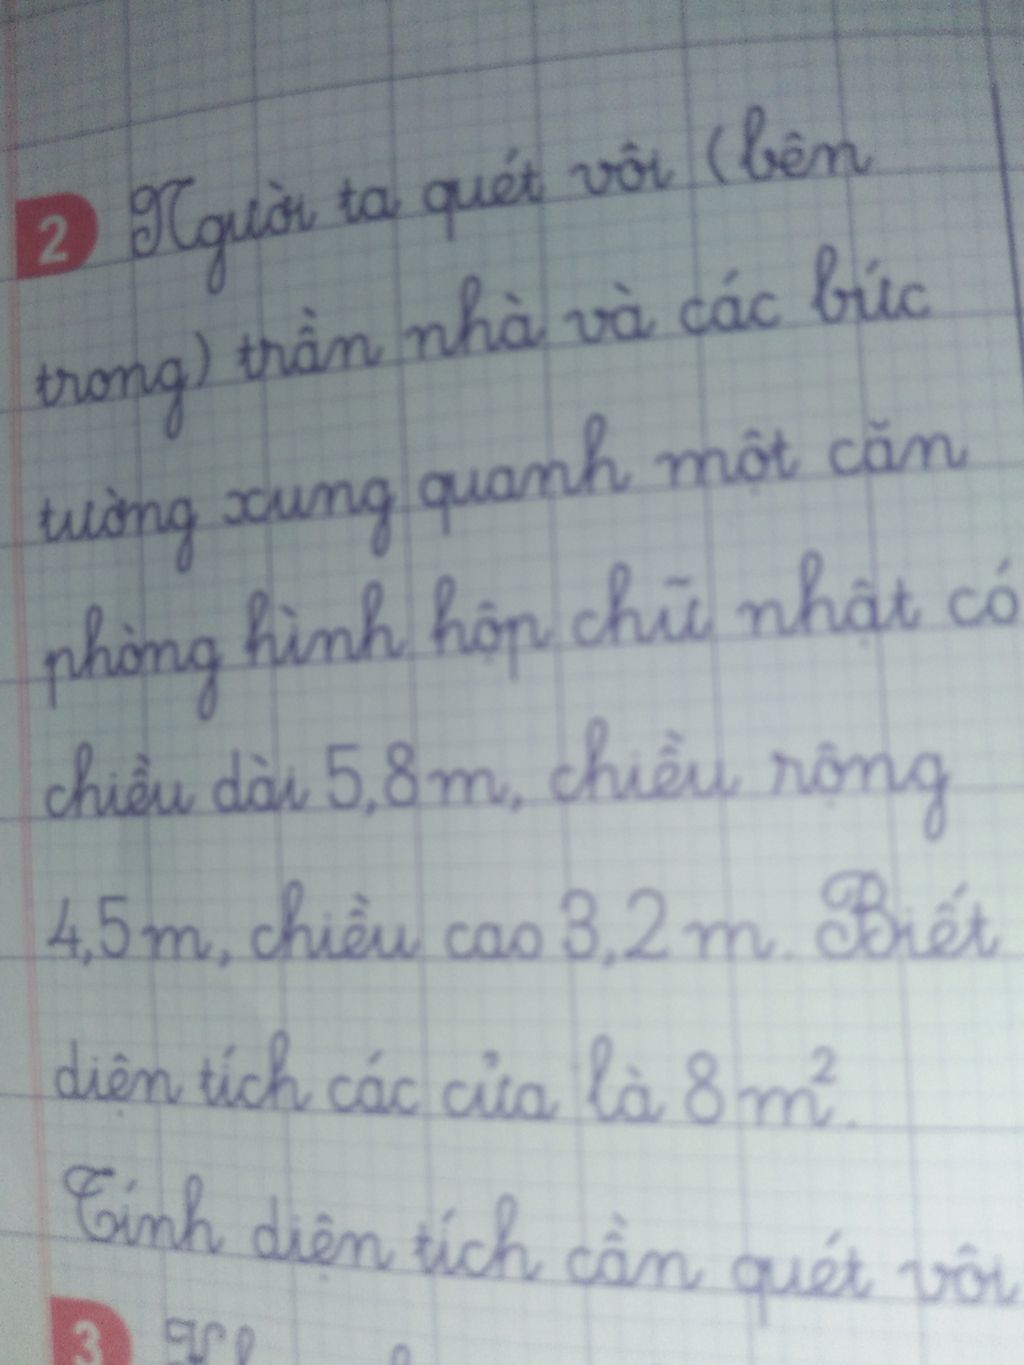 2 Người ta quét vôi (bên
trong) trần nhà và các bức
tường xung quanh một căn
phòng hình hộp chữ nhật có
chiều dài 5,8 m, chiều rộng
4,5 m, chiều cao 3,2 m. Biết
diện tích các cửa là 8 m².
Tính diện tích cần quét vôi
3